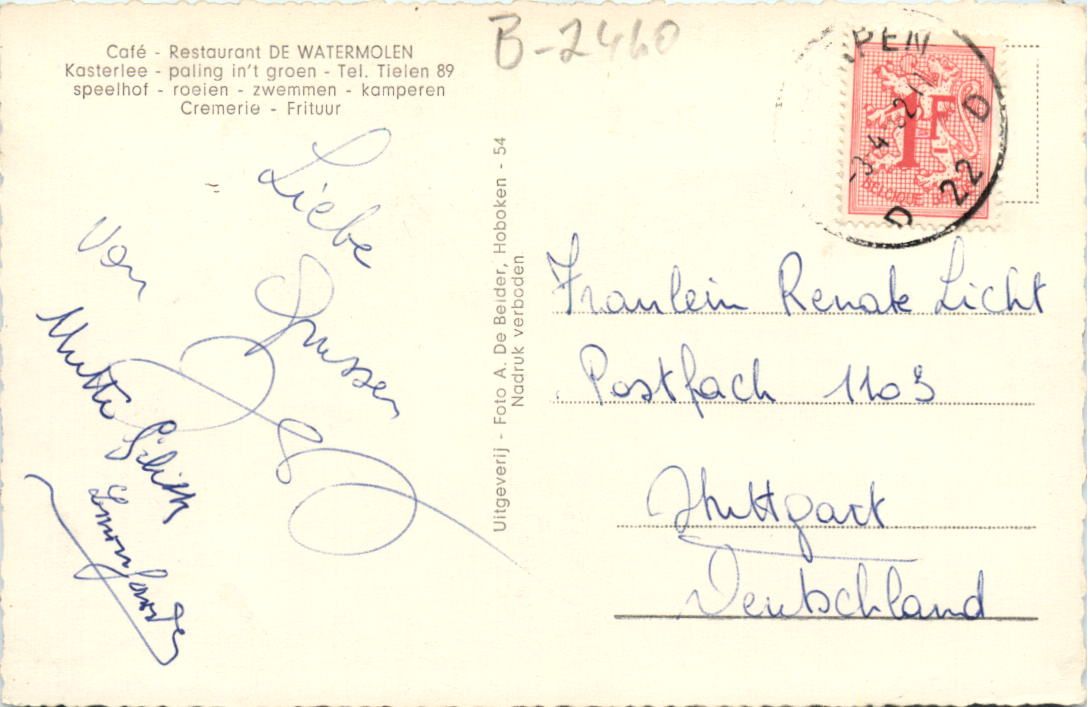 B-2460
Café - Restaurant DE WATERMOLEN
Kasterlee - paling in't groen - Tel. Tielen 89
speelhof - roeien - zwemmen - kamperen
Cremerie - Frituur
Liebe
Grüssen
von
Uitgeverij - Foto A. De Belder, Hoboken - 54
Nadruk verboden
PEN
D 22 D
1F
BELGIQUE BEL
Fraulein Renate Licht
Postfach 1103
Stuttgart
Deutschland